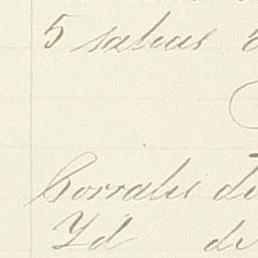 5 salvas
Corrales de
Yd de